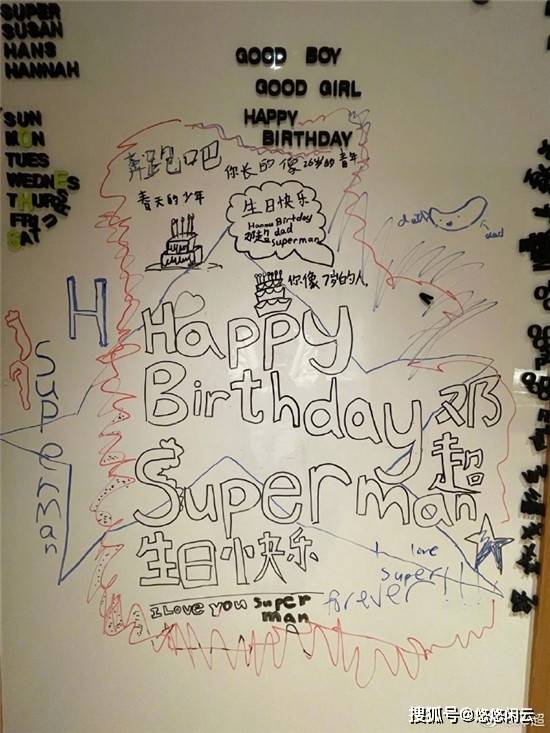 SUPER
SUSAN
HANS
HANNAH
GOOD BOY
GOOD GIRL
HAPPY
BIRTHDAY
SUN
MON
TUES
WEDNES
THURS
FRI
SAT
奔跑吧
你长的像26岁的青年
春天的少年
生日快乐
Happy Birthday
邓超 dad
superman
dad
你像7岁的人
H
superman
Happy
Birthday 邓超
Superman
生日快乐
I love
super!!!
forever
I Love you super
man
搜狐号@悠悠闲云